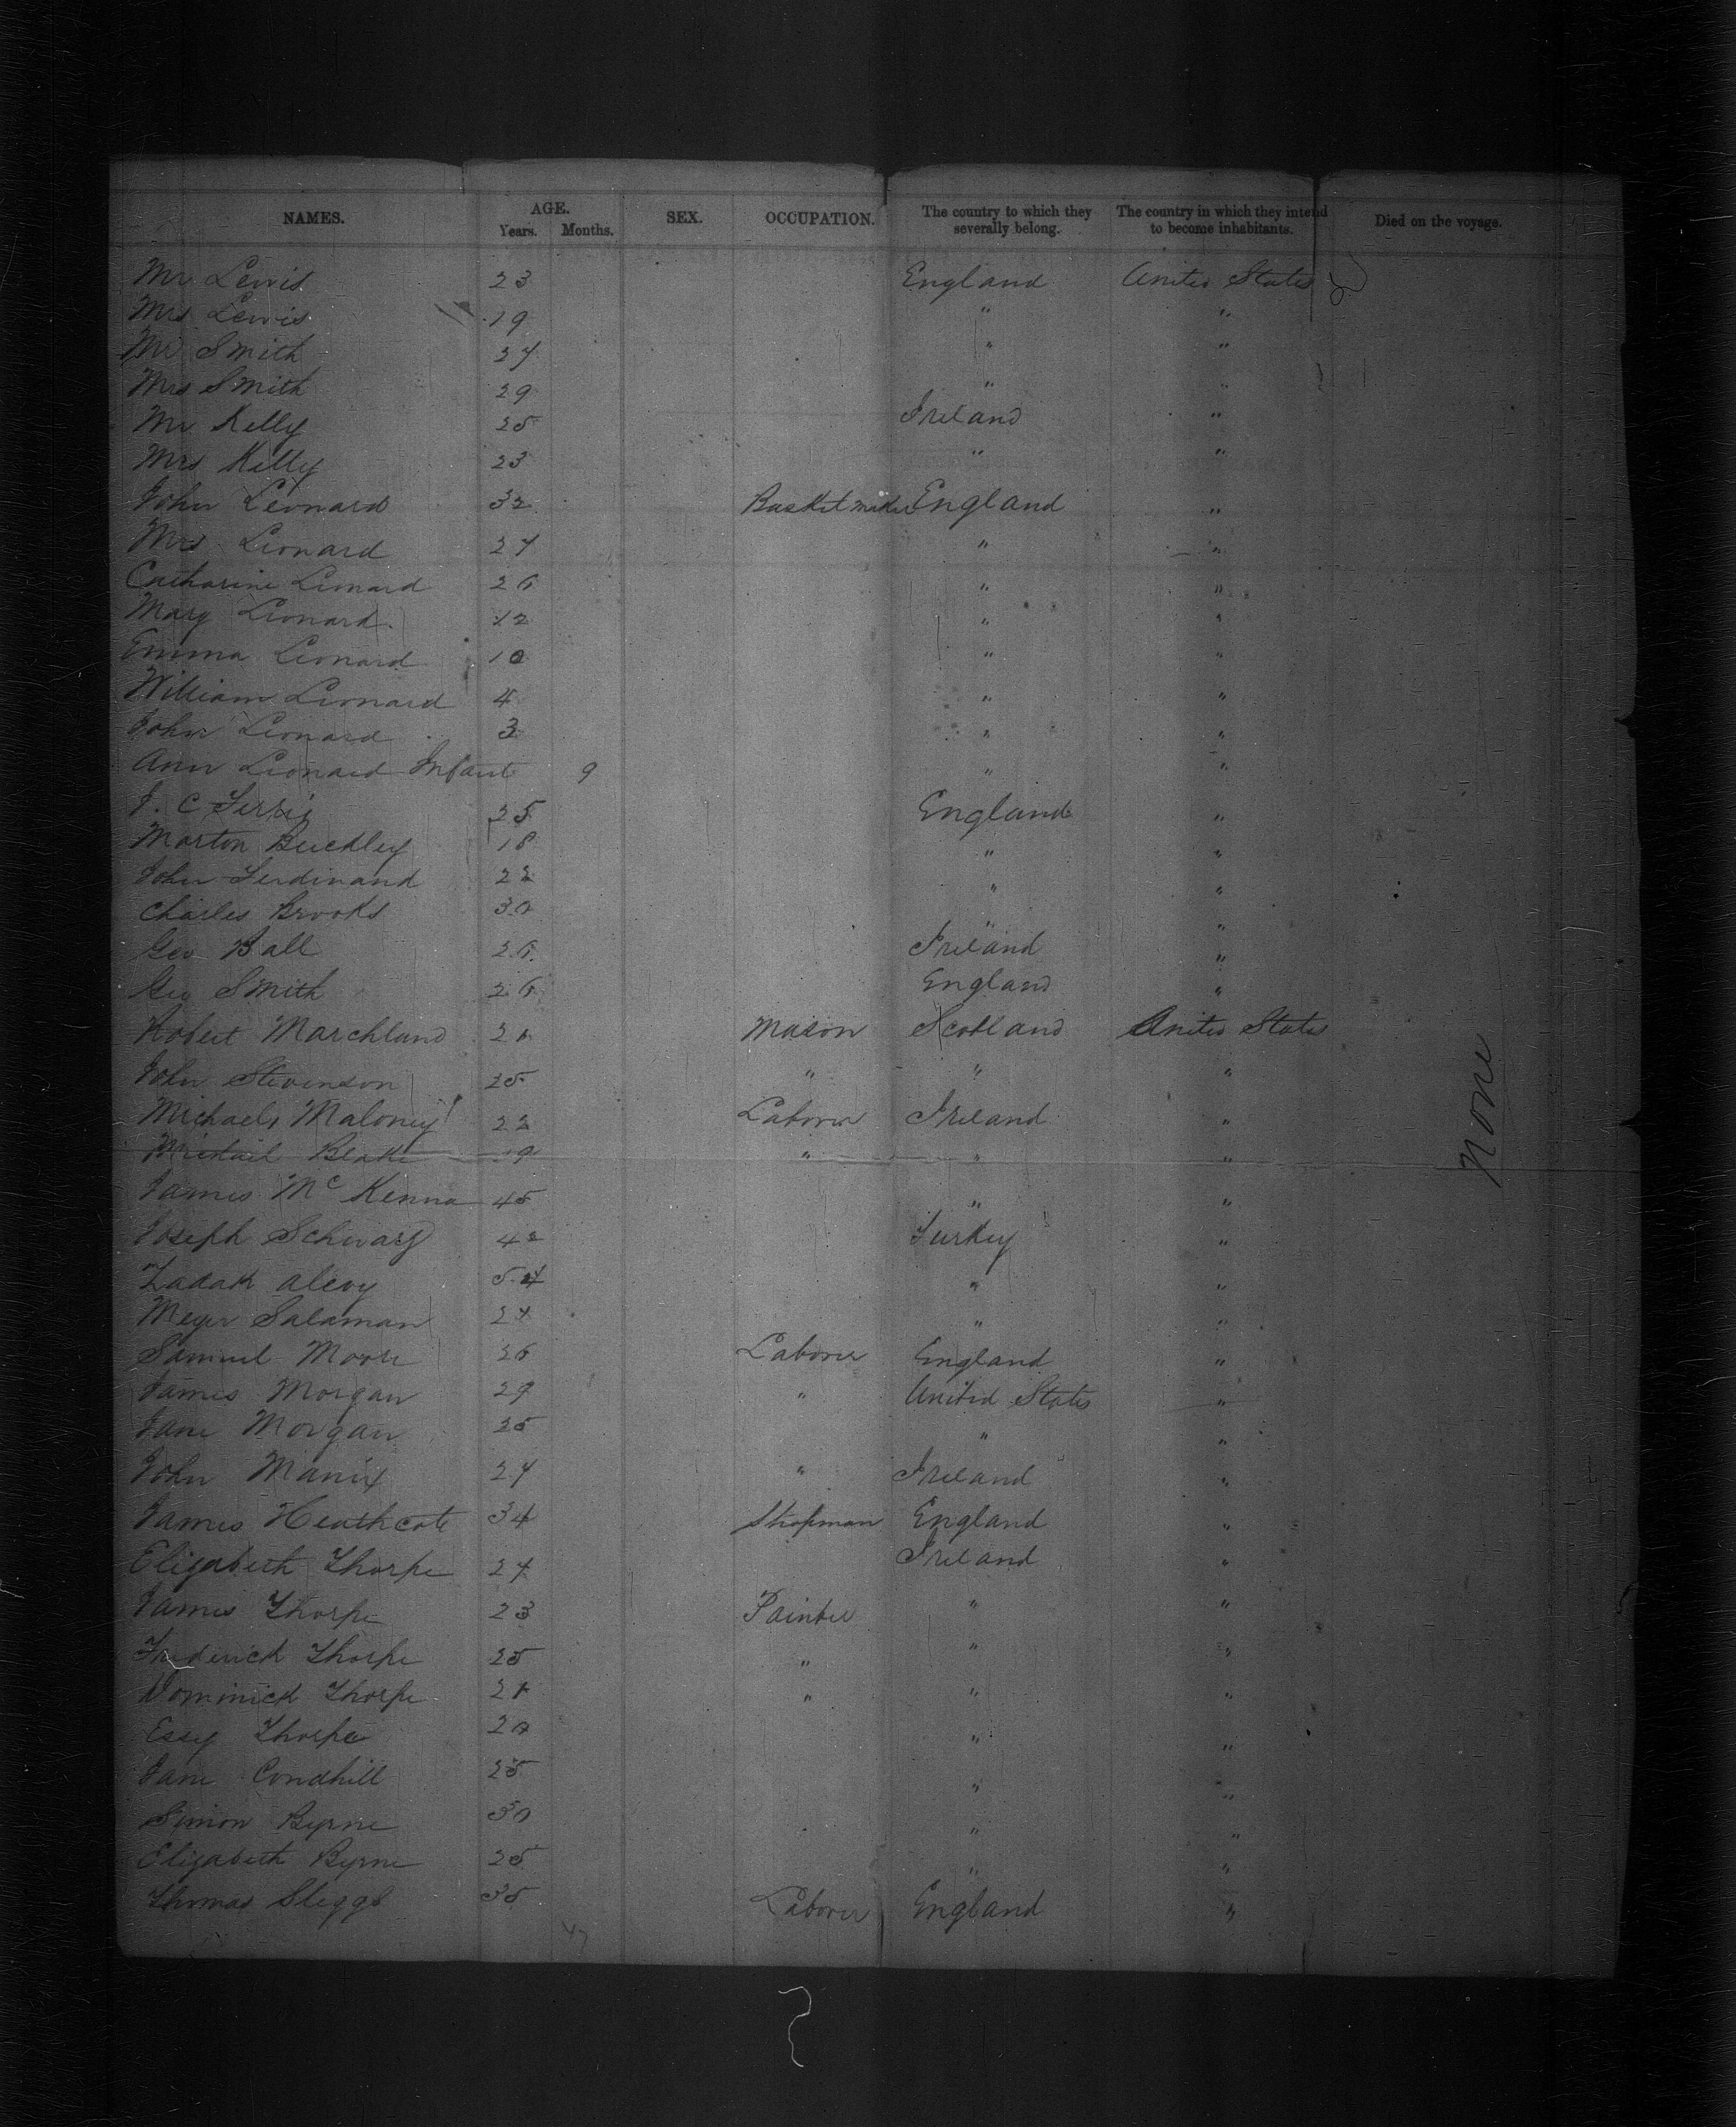 NAMES. AGE. SEX. OCCUPATION. The country to which they severally belong. The country in which they intend to become inhabitants. Died on the voyage.
Years. Months.
Mr Lewis 23 England United States
Mrs Lewis 19 " "
Mr Smith 27 " "
Mrs Smith 29 " "
Mr Kelly 25 Ireland "
Mrs Kelly 23 " "
John Leonard 32 Basket maker England "
Mrs Leonard 27 " "
Catharine Leonard 26 " "
Mary Leonard 12 " "
Emma Leonard 10 " "
William Leonard 4 " "
John Leonard 3 " "
Ann Leonard Infant 9 " "
J. C 25 England "
Morton Buckley 18 " "
John Ferdinand 22 " "
Charles Brooks 30 " "
Geo Ball 26 Ireland "
Geo Smith 26 England "
Robert Marchland 21 Mason Scotland United States
John Stevenson 25 " " "
Michael Maloney 22 Laborer Ireland "
Michail Blake 19 " " "
James Mc Kenna 45 " "
Joseph Schwarz 42 Turkey "
Zadak alevy 54 " "
Meyer Salaman 24 " "
Samuel Moore 26 Laborer England "
James Morgan 29 " United States "
Jane Morgan 25 " "
John Manix 27 " Ireland "
James Heathcote 34 Shopman England "
Elizabeth Thorpe 24 Ireland "
James Thorpe 23 Painter " "
Frederick Thorpe 25 " " "
Dominick Thorpe 21 " " "
Essy Thorpe 20 " "
Jane Condhill 25 " "
Simon Byrne 30 " "
Elizabeth Byrne 25 " "
Thomas Sleggs 35 Laborer England "
None